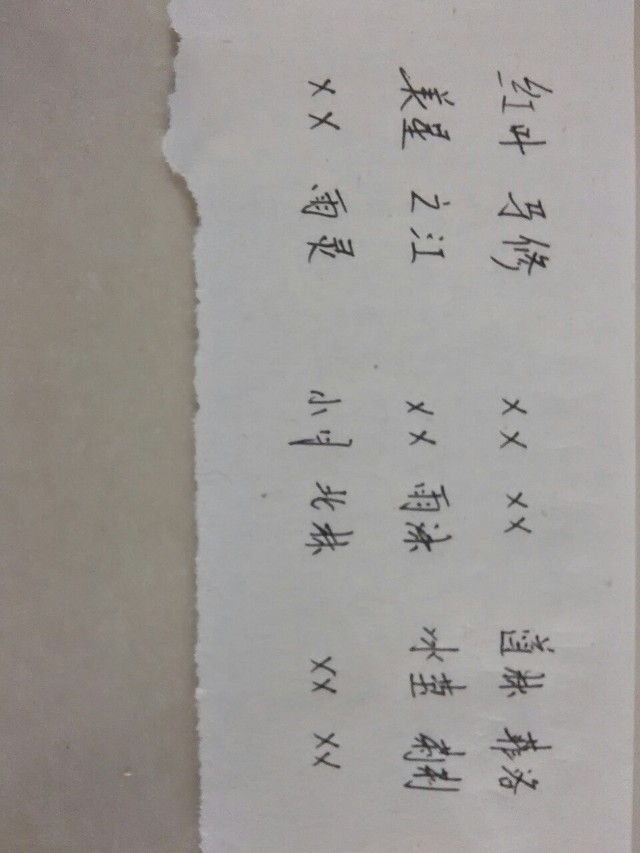 红叶 马修 xx xx 道林 菲洛
美星 之江 xx 雨沫 冰莹 刺刺
xx 雨录 小月 北林 xx xx